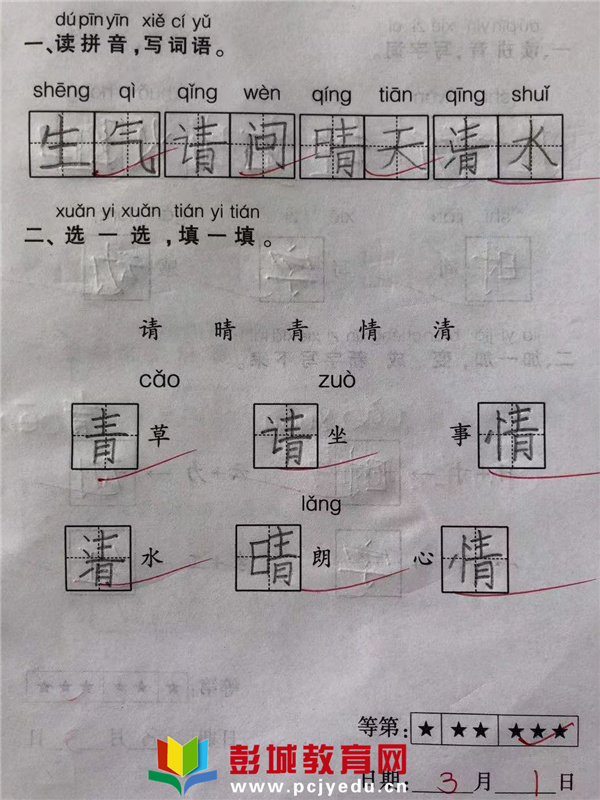 dú pīn yīn xiě cí yǔ
一、读拼音,写词语。
shēng qì qǐng wèn qíng tiān qīng shuǐ
生气 请问 晴天 清水
xuǎn yi xuǎn tián yi tián
二、选一选,填一填。
请 晴 青 情 清
cǎo zuò
青草 请坐 事情
lǎng
清水 晴朗 心情
等第: ★ ★★ ★★★
日期: 3 月 1 日
彭城教育网
www.pcjyedu.cn